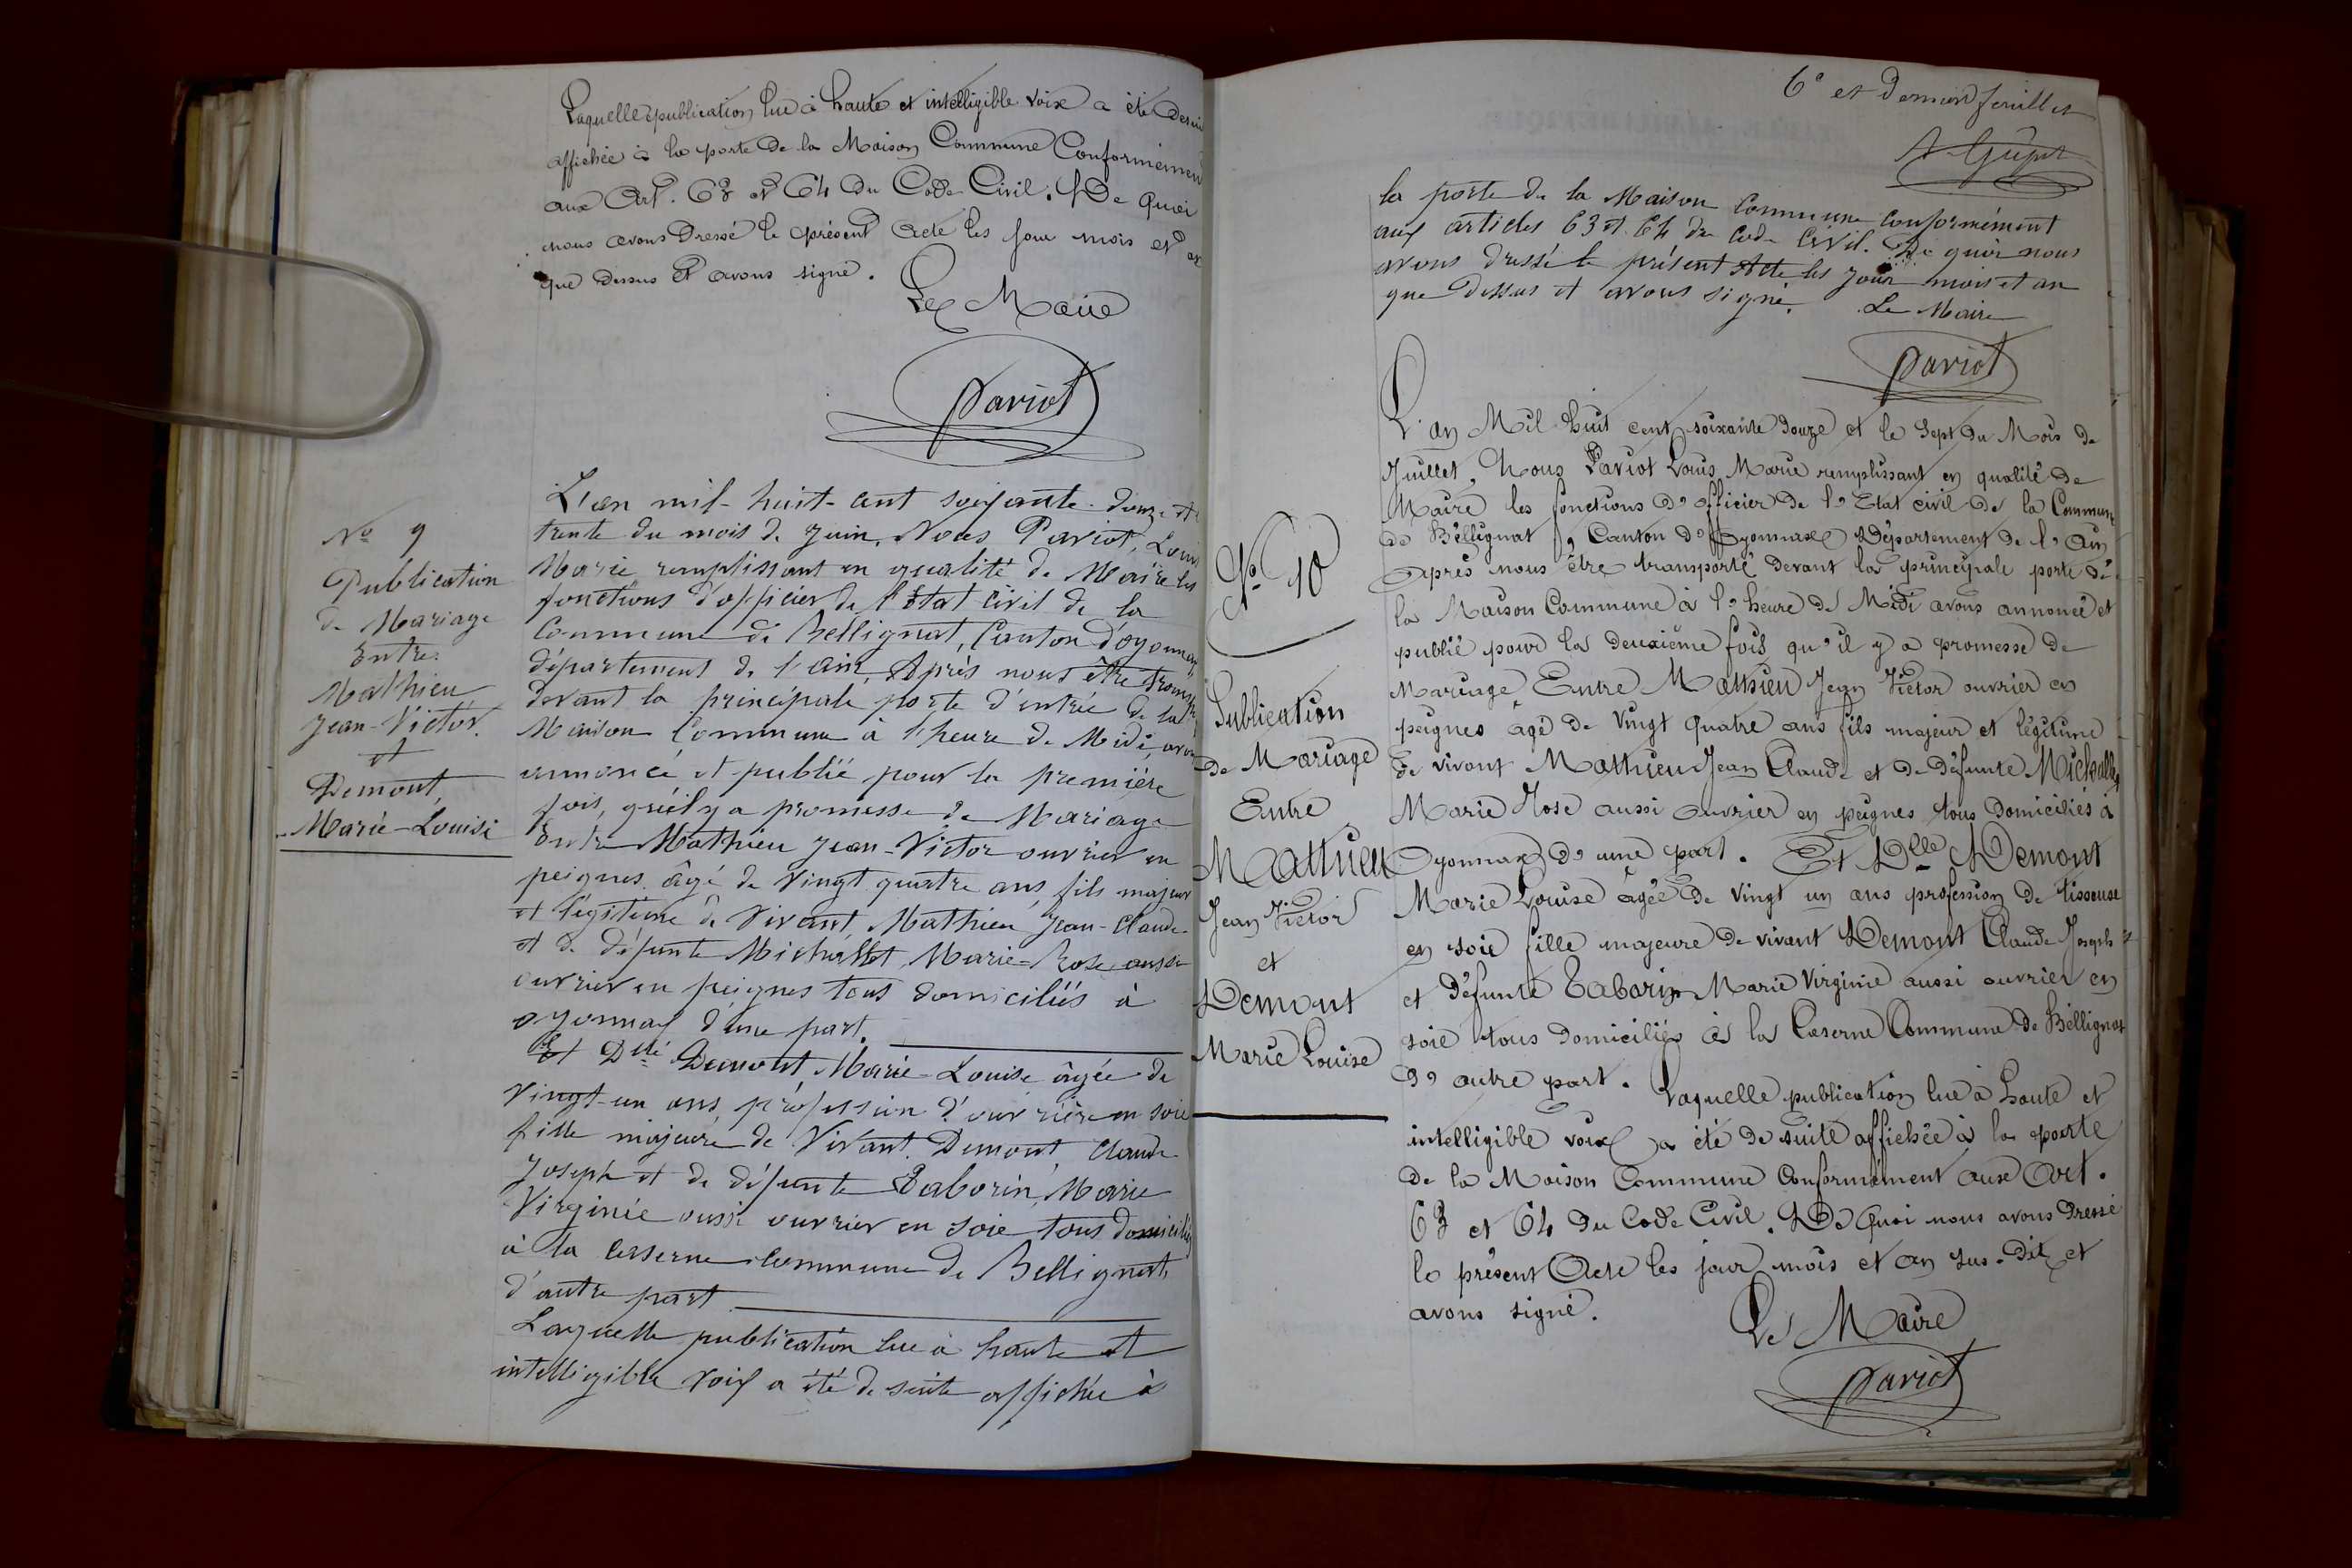 Laquelle publication lue à haute et intelligible voix a été de suite
affichée à la porte de la Maison Commune Conformément
aux Art. 63 et 64 du Code Civil. De quoi
nous avons dressé le présent Acte les jour mois et an
que dessus et avons signé.
Le Maire
Pariot
No 9
Publication
de Mariage
Entre
Mathieu
Jean-Victor
et
Demont,
Marie-Louise
L'an mil-huit-cent soixante-douze et
trente du mois de Juin, Nous Pariot, Louis
Marie remplissant en qualité de Maire les
fonctions d'officier de l'Etat civil de la
Commune de Bellignat, Canton d'oyonnax
département de l'ain, Après nous être transporté
devant la principale porte d'entrée de la
Maison Commune à l'heure de Midi, avons
annoncé et publié pour la première
fois, qu'il y a promesse de Mariage
Entre Mathieu Jean-Victor ouvrier en
peignes âgé de vingt quatre ans, fils majeur
et légitime de vivant Mathieu Jean-Claude
et de défunte Michallet Marie-Rose aussi
ouvrier en peignes tous domiciliés à
oyonnax d'une part.
Et Dlle Demont Marie-Louise âgée de
vingt-un ans, profession d'ouvrière en soie
fille majeure de vivant Demont Claude
Joseph et de défunte Taborin, Marie
Virginie aussi ouvrier en soie tous domiciliés
à la caserne commune de Bellignat,
d'autre part
Laquelle publication lue à haute et
intelligible voix a été de suite affichée à
6e et dernier feuillet
la porte de la Maison Commune conformément
aux articles 63 et 64 du code civil. De quoi nous
avons dressé le présent Acte les jour mois et an
que dessus et avons signé. Le Maire
Pariot
No 10
Publication
de Mariage
Entre
Mathieu
Jean Victor
et
Demont
Marie Louise
L'an Mil huit cent soixante douze et le Sept du Mois de
Juillet, Nous Pariot Louis Marie remplissant en qualité de
Maire les fonctions d'officier de l'Etat civil de la Commune
de Béllignat, Canton d'Oyonnax Département de l'Ain
Après nous être transporté devant la principale porte de
la Maison Commune à l'heure de Midi avons annoncé et
publié pour la deuxième fois qu'il y a promesse de
Mariage Entre Mathieu Jean Victor ouvrier en
peignes âgé de vingt quatre ans fils majeur et légitime
de vivant Mathieu Jean Claude et de défunte Michallet
Marie Rose aussi ouvrier en peignes tous domiciliés à
Oyonnax d'une part. Et Dlle Demont
Marie Louise âgée de vingt un ans profession de tisseuse
en soie fille majeure de vivant Demont Claude Joseph
et défunte Tabarin Marie Virginie aussi ouvrier en
soie tous domiciliés à la Caserne Commune de Béllignat
d'autre part. Laquelle publication lue à haute et
intelligible voix a été de suite affichée à la porte
de la Maison Commune Conformément aux Art.
63 et 64 du Code Civil. De quoi nous avons dressé
le présent Acte les jour mois et an sus-dit et
avons signé.
Le Maire
Pariot